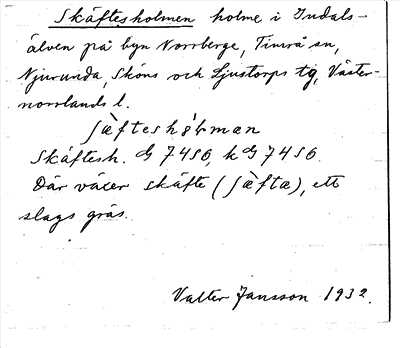 Skäftesholmen holme i Indals-
älven på byn Norrberge, Timrå sn,
Njurunda, Sköns och Ljustorps tg, Väster-
norrlands l.
Skäftesh. G 7456, k G 7456.
Där växer skäfte (ʃæ̀fta), ett
slags gräs.
Valter Jansson 1932.